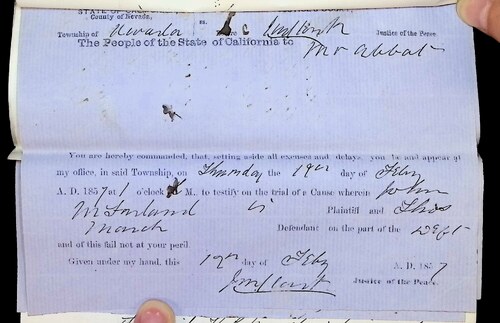 STATE OF
County of Nevada, ss.
Township of Nevada Justice of the Peace.
The People of the State of California to
Mr Abbat
You are hereby commanded, that, setting aside all excuses and delays, you be and appear at
my office, in said Township, on Thursday the 19th day of Feby
A. D. 1857 at 1 o'clock M., to testify on the trial of a Cause wherein John
McFarland is Plaintiff and Thos
March Defendant on the part of the Deft
and of this fail not at your peril.
Given under my hand, this 19th day of Feby A. D. 1857
Justice of the Peace.